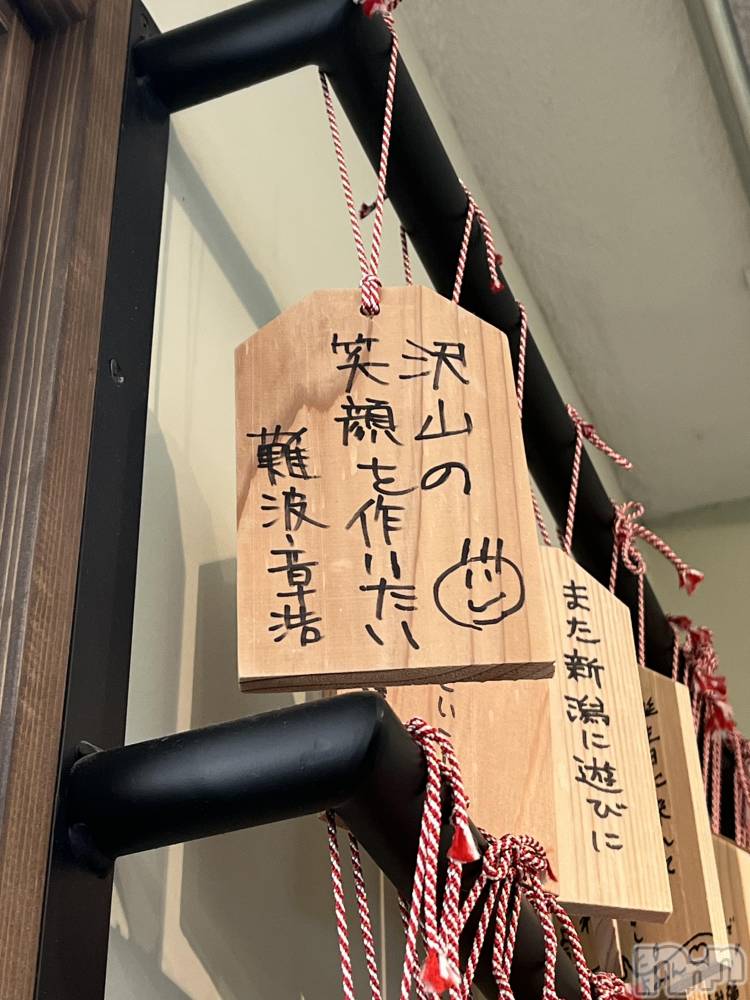 沢山の
笑顔を作りたい
難波章浩
また新潟に遊びに